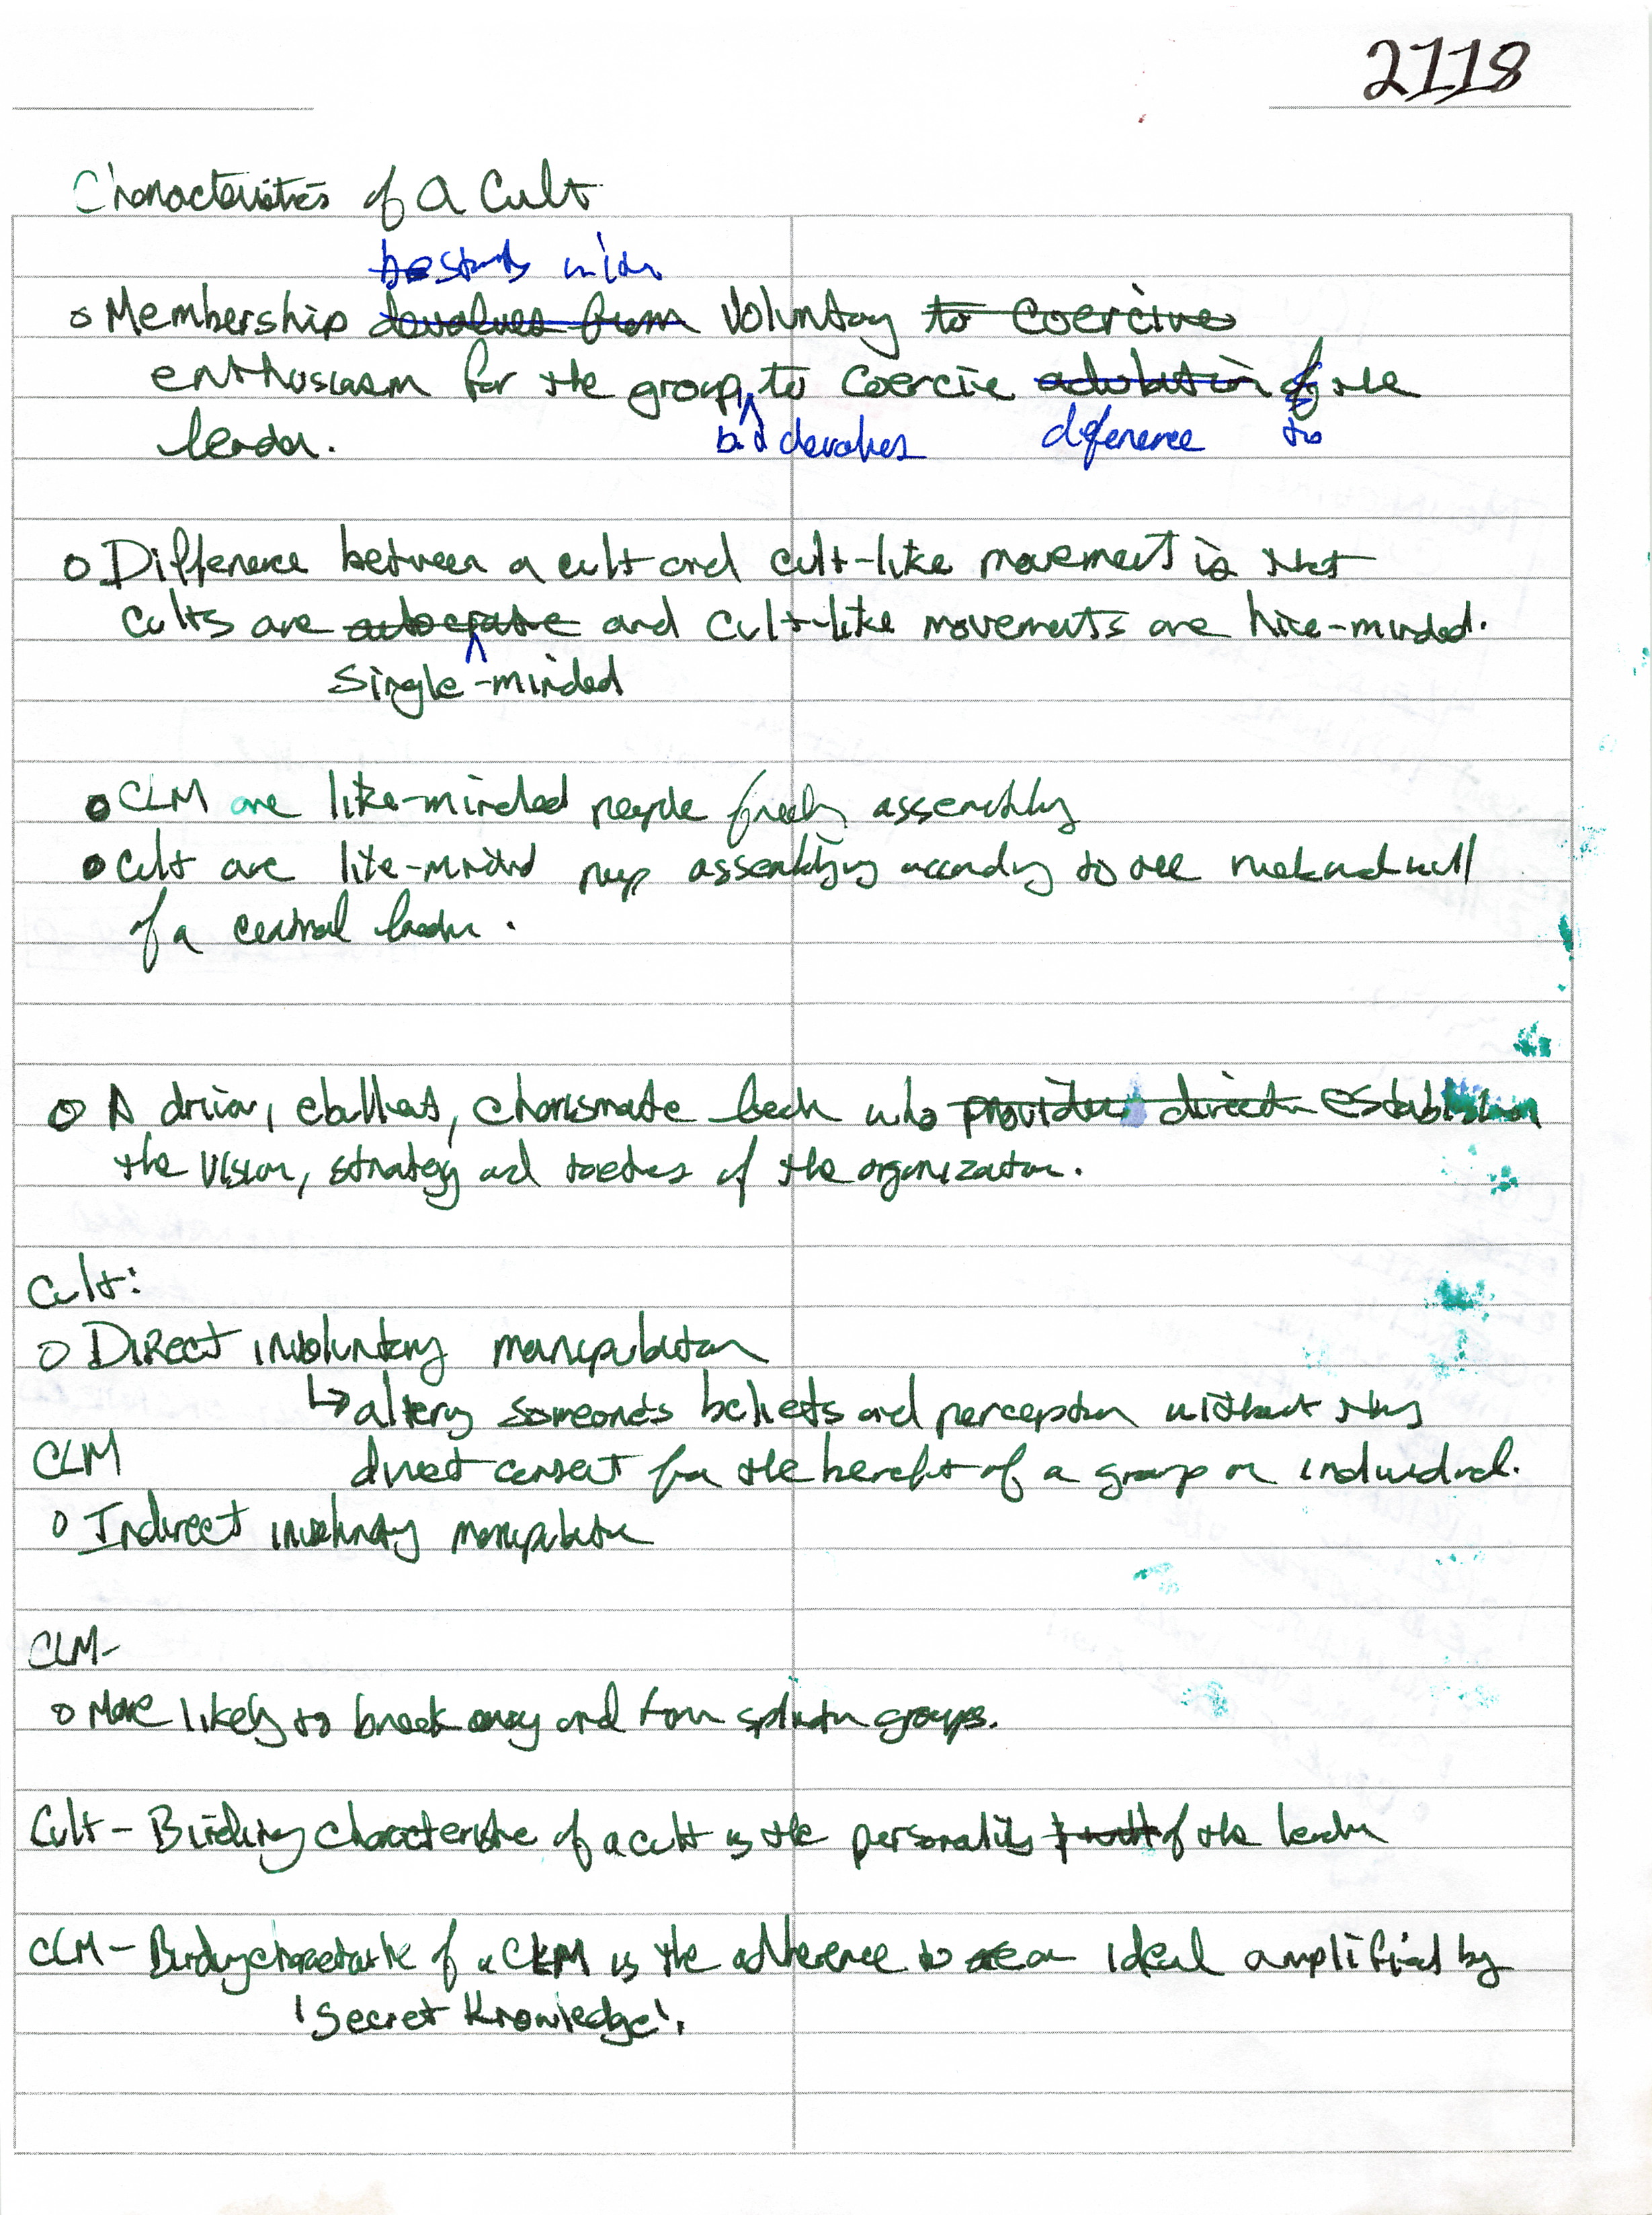 2118
Characteristics of a Cult
starts with
o Membership devolves from voluntary to coercive
enthusiasm for the group, to coercive adulation of the
leader. but devolves deference to
o Difference between a cult and cult-like movement is that
cults are autocratic and cult-like movements are hive-minded.
single-minded
o CLM are like-minded people freely assembly
o Cult are like-minded assembling according to the and will
of a central leader.
o A driven, charismatic leader who provides direction establishes
the vision, strategy and tactics of the organization.
Cult:
o Direct involuntary manipulation
↳ altering someone's beliefs and perception without their
CLM direct consent for the benefit of a group or individual.
o Indirect involuntary manipulation
CLM-
o More likely to break away and form splinter groups.
Cult - Binding characteristic of a cult is the personality of the leader
CLM - Binding characteristic of a CLM is the adherence to an ideal amplified by
'Secret Knowledge'.